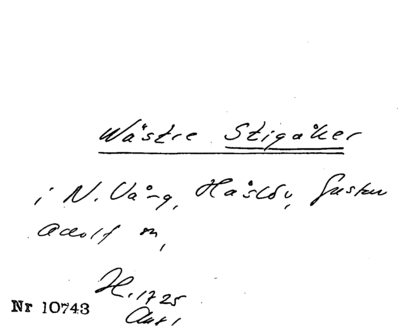 Wästre Stigåker
i N. Vång, Håslöv, Gustav
Adolf sn,
H. 1725
Akt 1
Nr 10743